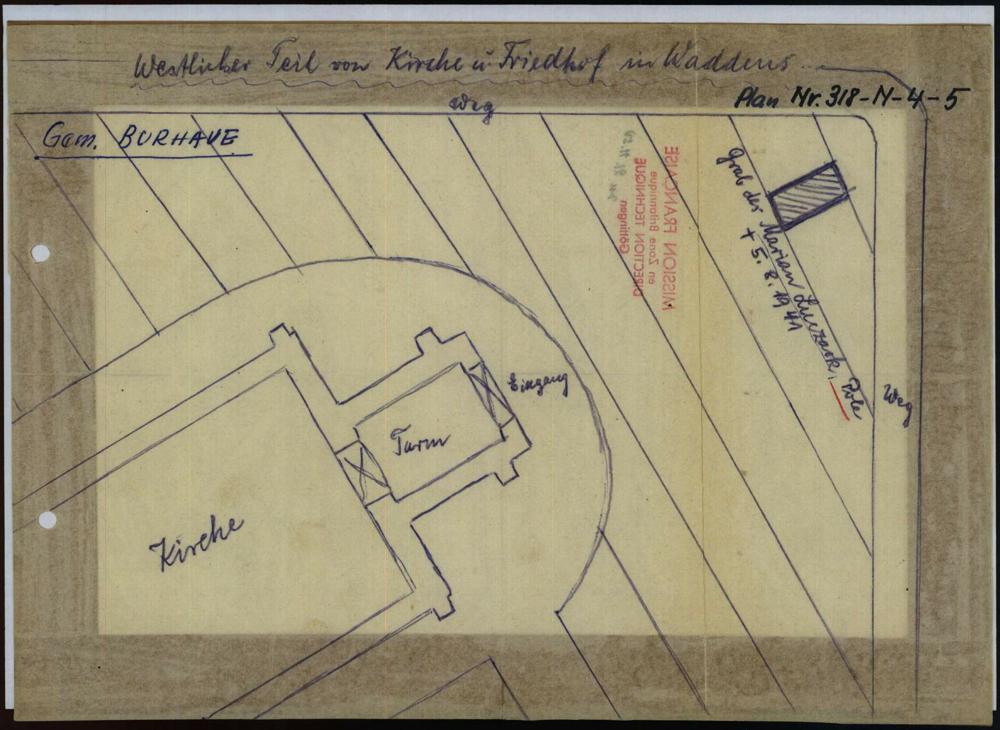 Westlicher Teil von Kirche u Friedhof in Waddens
Plan Nr. 318-N-4-5
Weg
Gem. BURHAVE
MISSION FRANCAISE
en Zone Britannique
DIRECTION TECHNIQUE
Göttingen
Grab des Marian Luczack, Pole
+ 5. 8. 1941
Weg
Eingang
Turm
Kirche